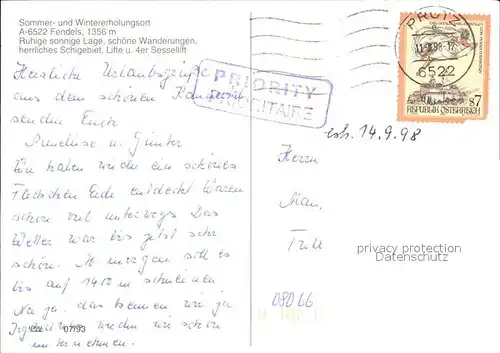 Sommer- und Wintererholungsort
A-6522 Fendels, 1356 m
Ruhige sonnige Lage, schöne Wanderungen,
herrliches Schigebiet, Lifte u. 4er Sessellift
Herzliche Urlaubsgrüße
aus dem schönen
senden Euch
u. Günter
Wir haben wieder ein schönes
Fleckchen Erde entdeckt Waren
schon viel unterwegs Das
Wetter war bis jetzt sehr
schön. Ab morgen soll es
bis auf 1400 m schneien
Na ja, das kennen wir ja
Irgendwas werden wir schon
unternehmen.
07/93
PRIORITY
PRIORITAIRE
PRUTZ
6522
REPUBLIK ÖSTERREICH
S7
erh. 14.9.98
Herrn
privacy protection
Datenschutz
08066